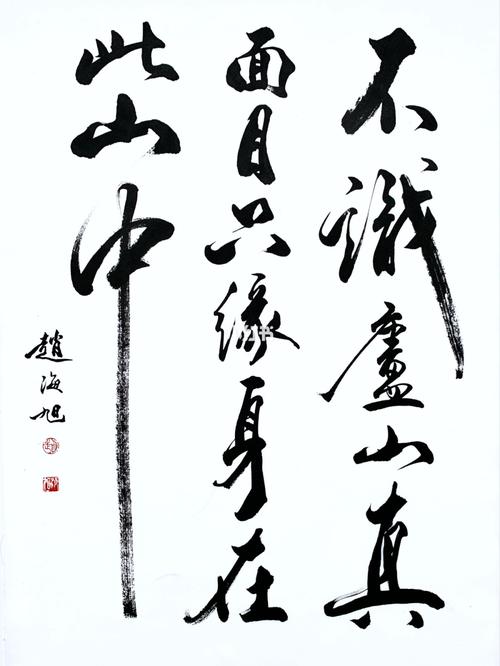 不識盧山真
面目只緣身在
此山中
趙海旭